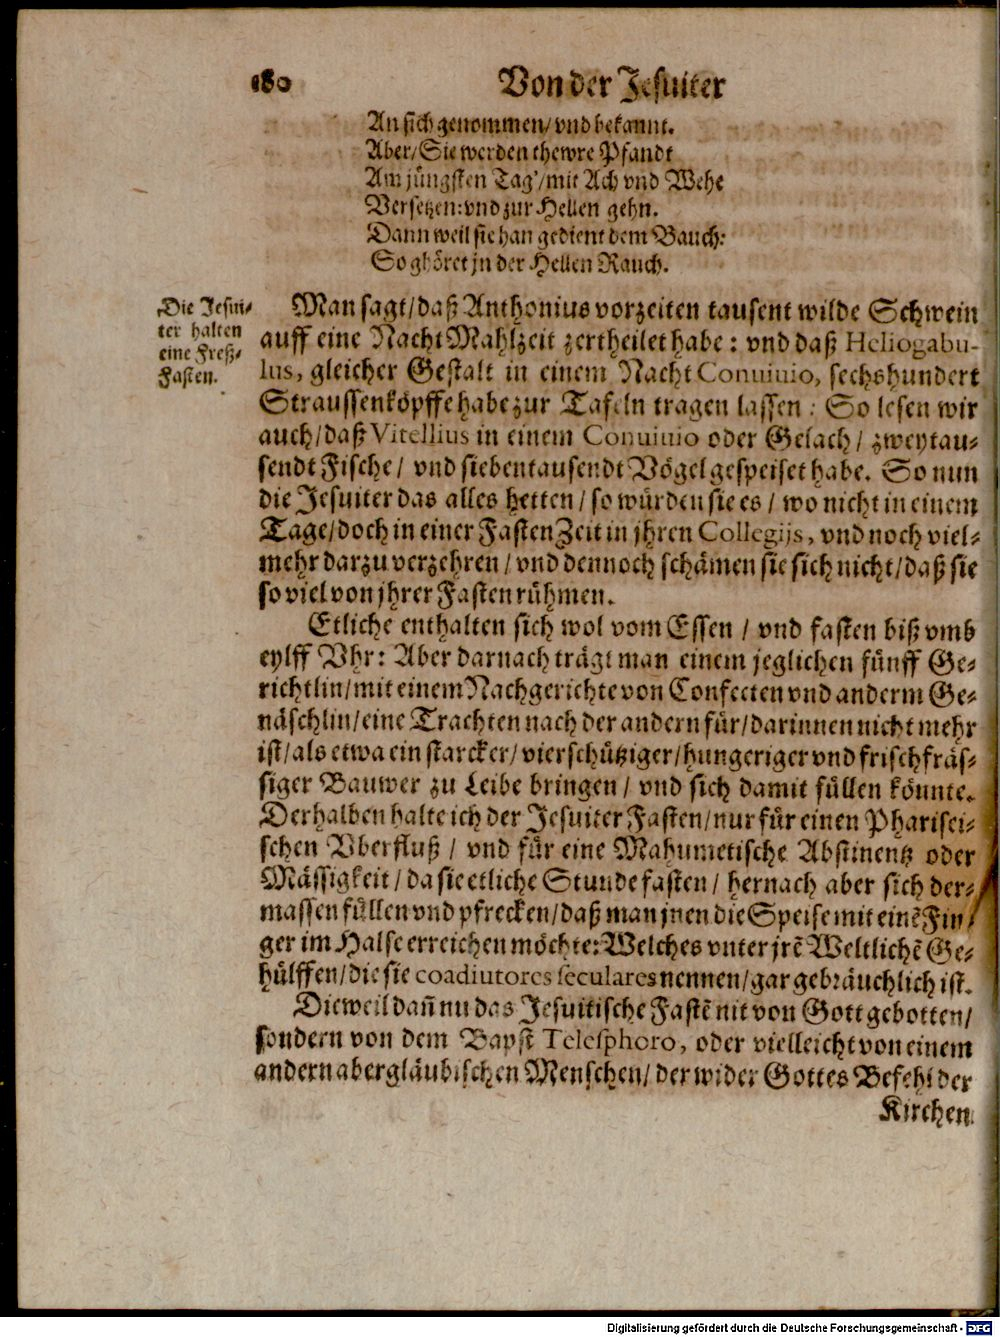 180 Von der Jesuiter
An sich genommen/ vnd bekannt.
Aber/ Sie werden thewre Pfandt
Am jüngsten Tag'/ mit Ach vnd Wehe
Versetzen: vnd zur Hellen gehn.
Dann weil sie han gedient dem Bauch:
So ghöret jn der Hellen Rauch.
Die Jesui-
ter halten
eine Freß-
Fasten.
Man sagt/ daß Anthonius vorzeiten tausent wilde Schwein
auff eine Nacht Mahlzeit zertheilet habe: vnd daß Heliogabu-
lus, gleicher Gestalt in einem Nacht Conuiuio, sechshundert
Straussenköpffe habe zur Tafeln tragen lassen: So lesen wir
auch/ daß Vitellius in einem Conuiuio oder Gelach/ zweytau-
sendt Fische/ vnd siebentausendt Vögel gespeiset habe. So nun
die Jesuiter das alles hetten/ so würden sie es/ wo nicht in einem
Tage/ doch in einer Fasten Zeit in jhren Collegijs, vnd noch viel-
mehr darzu verzehren/ vnd dennoch schämen sie sich nicht/ daß sie
so viel von jhrer Fasten rühmen.
Etliche enthalten sich wol vom Essen/ vnd fasten biß vmb
eylff Vhr: Aber darnach trägt man einem jeglichen fünff Ge-
richtlin/ mit einem Nachgerichte von Confecten vnd anderm Ge-
näschlin/ eine Trachten nach der andern für/ darinnen nicht mehr
ist/ als etwa ein starcker/ vierschütziger/ hungeriger vnd frischfräs-
siger Bauwer zu Leibe bringen/ vnd sich damit füllen könnte.
Derhalben halte ich der Jesuiter Fasten/ nur für einen Pharisei-
schen Vberfluß/ vnd für eine Mahumetische Abstinentz oder
Mässigkeit/ da sie etliche Stunde fasten/ hernach aber sich der-
massen füllen vnd pfrecken/ daß man jnen die Speise mit einē Fin-
ger im Halse erreichen möchte: Welches vnter jrē Weltlichē Ge-
hülffen/ die sie coadiutores seculares nennen/ gar gebräuchlich ist.
Dieweil dañ nu das Jesuitische Fastē nit von Gott gebotten/
sondern von dem Bapst Telesphoro, oder vielleicht von einem
andern abergläubischen Menschen/ der wider Gottes Befehl der
Kirchen
Digitalisierung gefördert durch die Deutsche Forschungsgemeinschaft - DFG